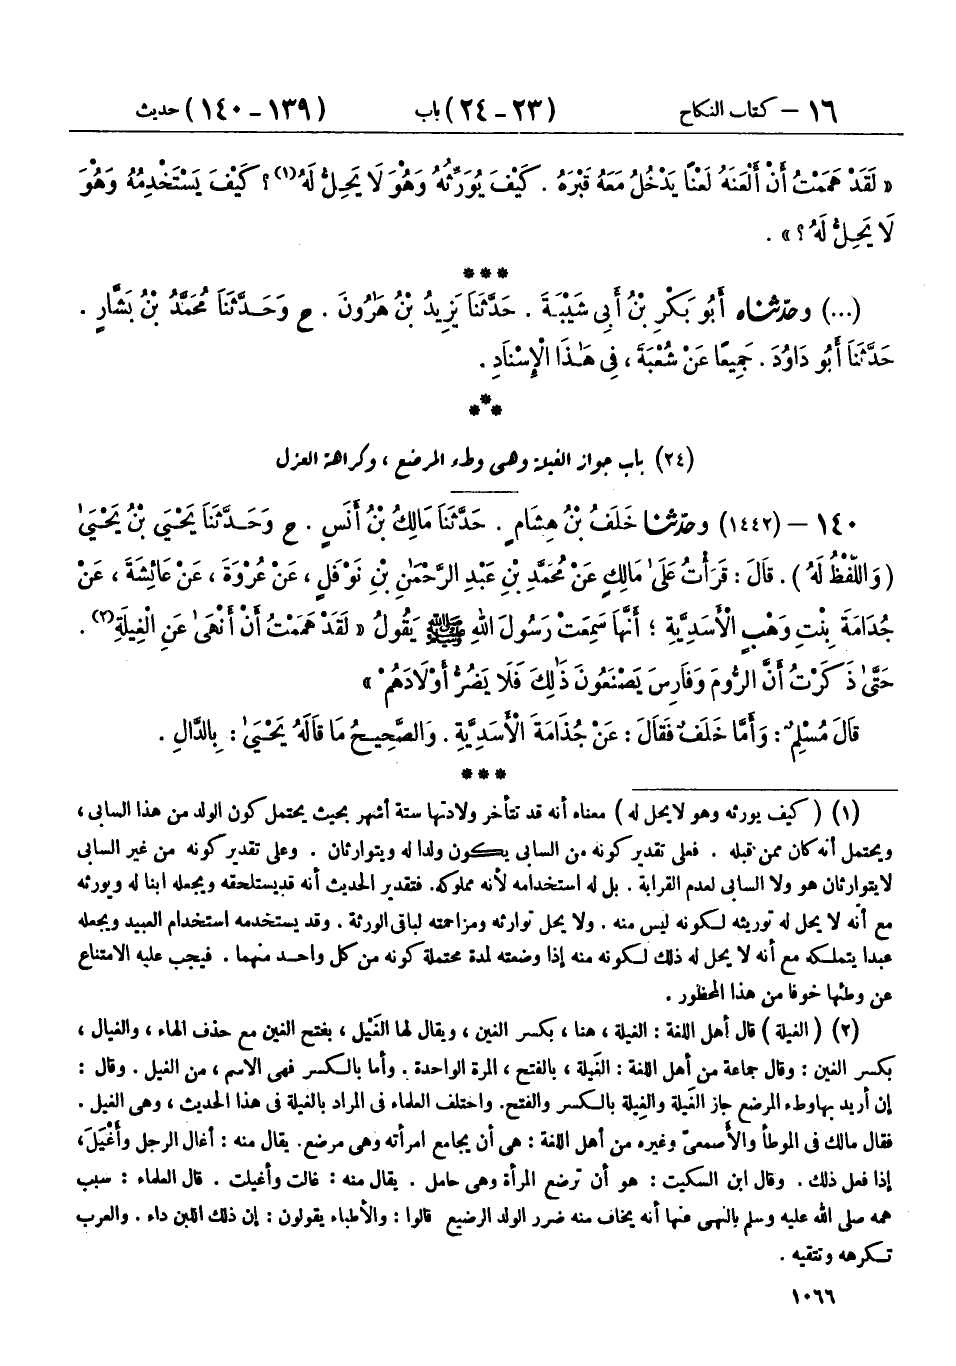 ١٦ – كتاب النكاح (٢٣ – ٢٤) باب (١٣٩ – ١٤٠) حديث
« لَقَدْ هَمَمْتُ أَنْ أَلْعَنَهُ لَعْنًا يَدْخُلُ مَعَهُ قَبْرَهُ . كَيْفَ يُوَرِّثُهُ وَهُوَ لَا يَحِلُّ لَهُ(١) ؟ كَيْفَ يَسْتَخْدِمُهُ وَهُوَ
لَا يَحِلُّ لَهُ ؟ » .
***
(...) وحدثناه أَبُو بَكْرِ بْنُ أَبِي شَيْبَةَ . حَدَّثَنَا يَزِيدُ بْنُ هَارُونَ . ح وَحَدَّثَنَا مُحَمَّدُ بْنُ بَشَّارٍ .
حَدَّثَنَا أَبُو دَاوُدَ . جَمِيعًا عَنْ شُعْبَةَ ، فِي هَٰذَا الْإِسْنَادِ .
***
(٢٤) باب جواز الغيلة وهى وطء المرضع ، وكراهة العزل
١٤٠ – (١٤٤٢) وحدثنا خَلَفُ بْنُ هِشَامٍ . حَدَّثَنَا مَالِكُ بْنُ أَنَسٍ . ح وَحَدَّثَنَا يَحْيَىٰ بْنُ يَحْيَىٰ
( وَاللَّفْظُ لَهُ ) . قَالَ : قَرَأْتُ عَلَىٰ مَالِكٍ عَنْ مُحَمَّدِ بْنِ عَبْدِ الرَّحْمَٰنِ بْنِ نَوْفَلٍ ، عَنْ عُرْوَةَ ، عَنْ عَائِشَةَ ، عَنْ
جُدَامَةَ بِنْتِ وَهْبٍ الْأَسَدِيَّةِ ؛ أَنَّهَا سَمِعَتْ رَسُولَ اللهِ ﷺ يَقُولُ « لَقَدْ هَمَمْتُ أَنْ أَنْهَىٰ عَنِ الْغِيلَةِ(٢) .
حَتَّىٰ ذَكَرْتُ أَنَّ الرُّومَ وَفَارِسَ يَصْنَعُونَ ذَٰلِكَ فَلَا يَضُرُّ أَوْلَادَهُمْ »
قَالَ مُسْلِمٌ : وَأَمَّا خَلَفٌ فَقَالَ : عَنْ جُذَامَةَ الْأَسَدِيَّةِ . وَالصَّحِيحُ مَا قَالَهُ يَحْيَىٰ : بِالدَّالِ .
***
(١) ( كيف يورثه وهو لا يحل له ) معناه أنه قد تتأخر ولادتها ستة أشهر بحيث يحتمل كون الولد من هذا السابى ،
ويحتمل أنه كان ممن قبله . فعلى تقدير كونه من السابى يكون ولدا له ويتوارثان . وعلى تقدير كونه من غير السابى
لا يتوارثان هو ولا السابى لعدم القرابة . بل له استخدامه لأنه مملوكه. فتقدير الحديث أنه قد يستلحقه ويجعله ابنا له ويورثه
مع أنه لا يحل له توريثه لكونه ليس منه . ولا يحل توارثه ومزاحمته لباقى الورثة . وقد يستخدمه استخدام العبيد ويجعله
عبدا يتملكه مع أنه لا يحل له ذلك لكونه منه إذا وضعته لمدة محتملة كونه من كل واحد منهما . فيجب عليه الامتناع
عن وطئها خوفا من هذا المحظور .
(٢) ( الغيلة ) قال أهل اللغة : الغيلة ، هنا ، بكسر الغين ، ويقال لها الغَيْل ، بفتح الغين مع حذف الهاء ، والغيال ،
بكسر الغين : وقال جماعة من أهل اللغة : الغَيلة ، بالفتح ، المرة الواحدة . وأما بالكسر فهى الاسم ، من الغيل . وقال :
إن أريد بها وطء المرضع جاز الغَيلة والغِيلة بالكسر والفتح. واختلف العلماء فى المراد بالغيلة فى هذا الحديث ، وهى الغيل .
فقال مالك فى الموطأ والأصمعىّ وغيره من أهل اللغة : هى أن يجامع امرأته وهى مرضع. يقال منه : أغال الرجل وأَغْيَلَ،
إذا فعل ذلك . وقال ابن السكيت : هو أن ترضع المرأة وهى حامل . يقال منه : غالت وأغيلت . قال العلماء : سبب
همه صلى الله عليه وسلم بالنهى عنها أنه يخاف منه ضرر الولد الرضيع قالوا : والأطباء يقولون : إن ذلك اللبن داء . والعرب
تكرهه وتتقيه .
١٠٦٦